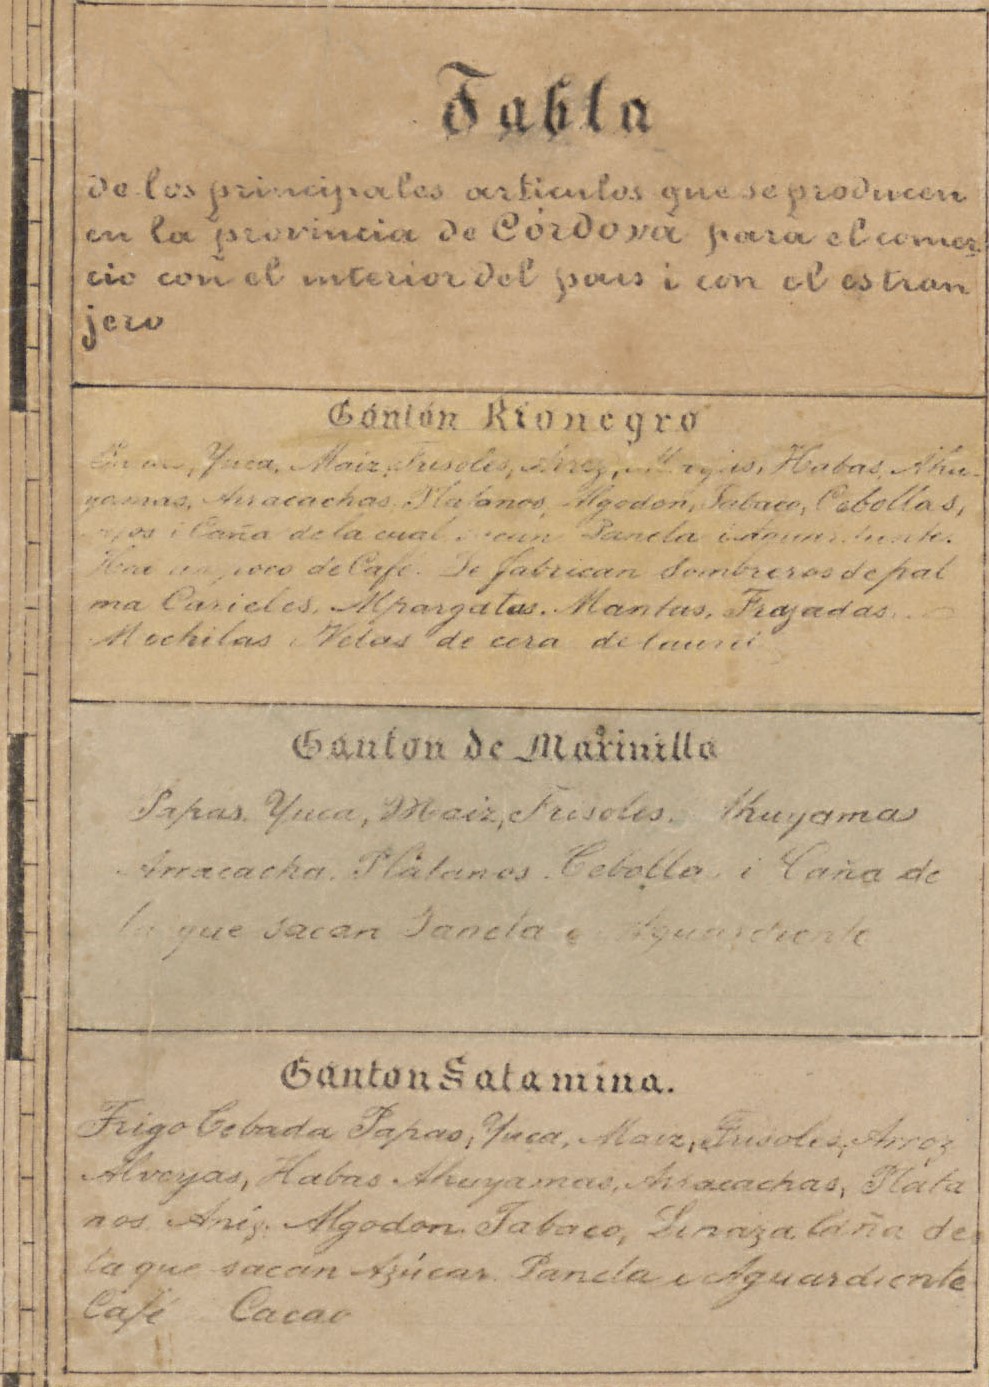 Tabla
de los principales artículos que se producen
en la provincia de Córdova para el comer
cio con el interior del pais i con el estran
jero
Canton Rionegro
Yuca, Maiz, Frisoles, Arroz, Habas, Ahu-
yamas, Arracachas, Platanos, Algodon, Tabaco, Cebollas,
i Caña de la cual sacan Panela i Aguardiente.
un poco de Café. Se fabrican Sombreros de pal
ma Carieles, Alpargatas, Mantas, Frazadas
Mochilas i Velas de cera de laurel
Canton de Marinilla
Papas, Yuca, Maiz, Frisoles, Ahuyamas
Arracacha, Plátanos, Cebolla i Caña de
la que sacan Panela e Aguardiente
Canton Salamina.
Trigo Cebada Papas, Yuca, Maiz, Frisoles, Arroz
Alveyas, Habas Ahuyamas, Arracachas, Pláta
nos Aniz, Algodon, Tabaco, Linaza Caña de
la que sacan Azúcar Panela e Aguardiente
Café Cacao